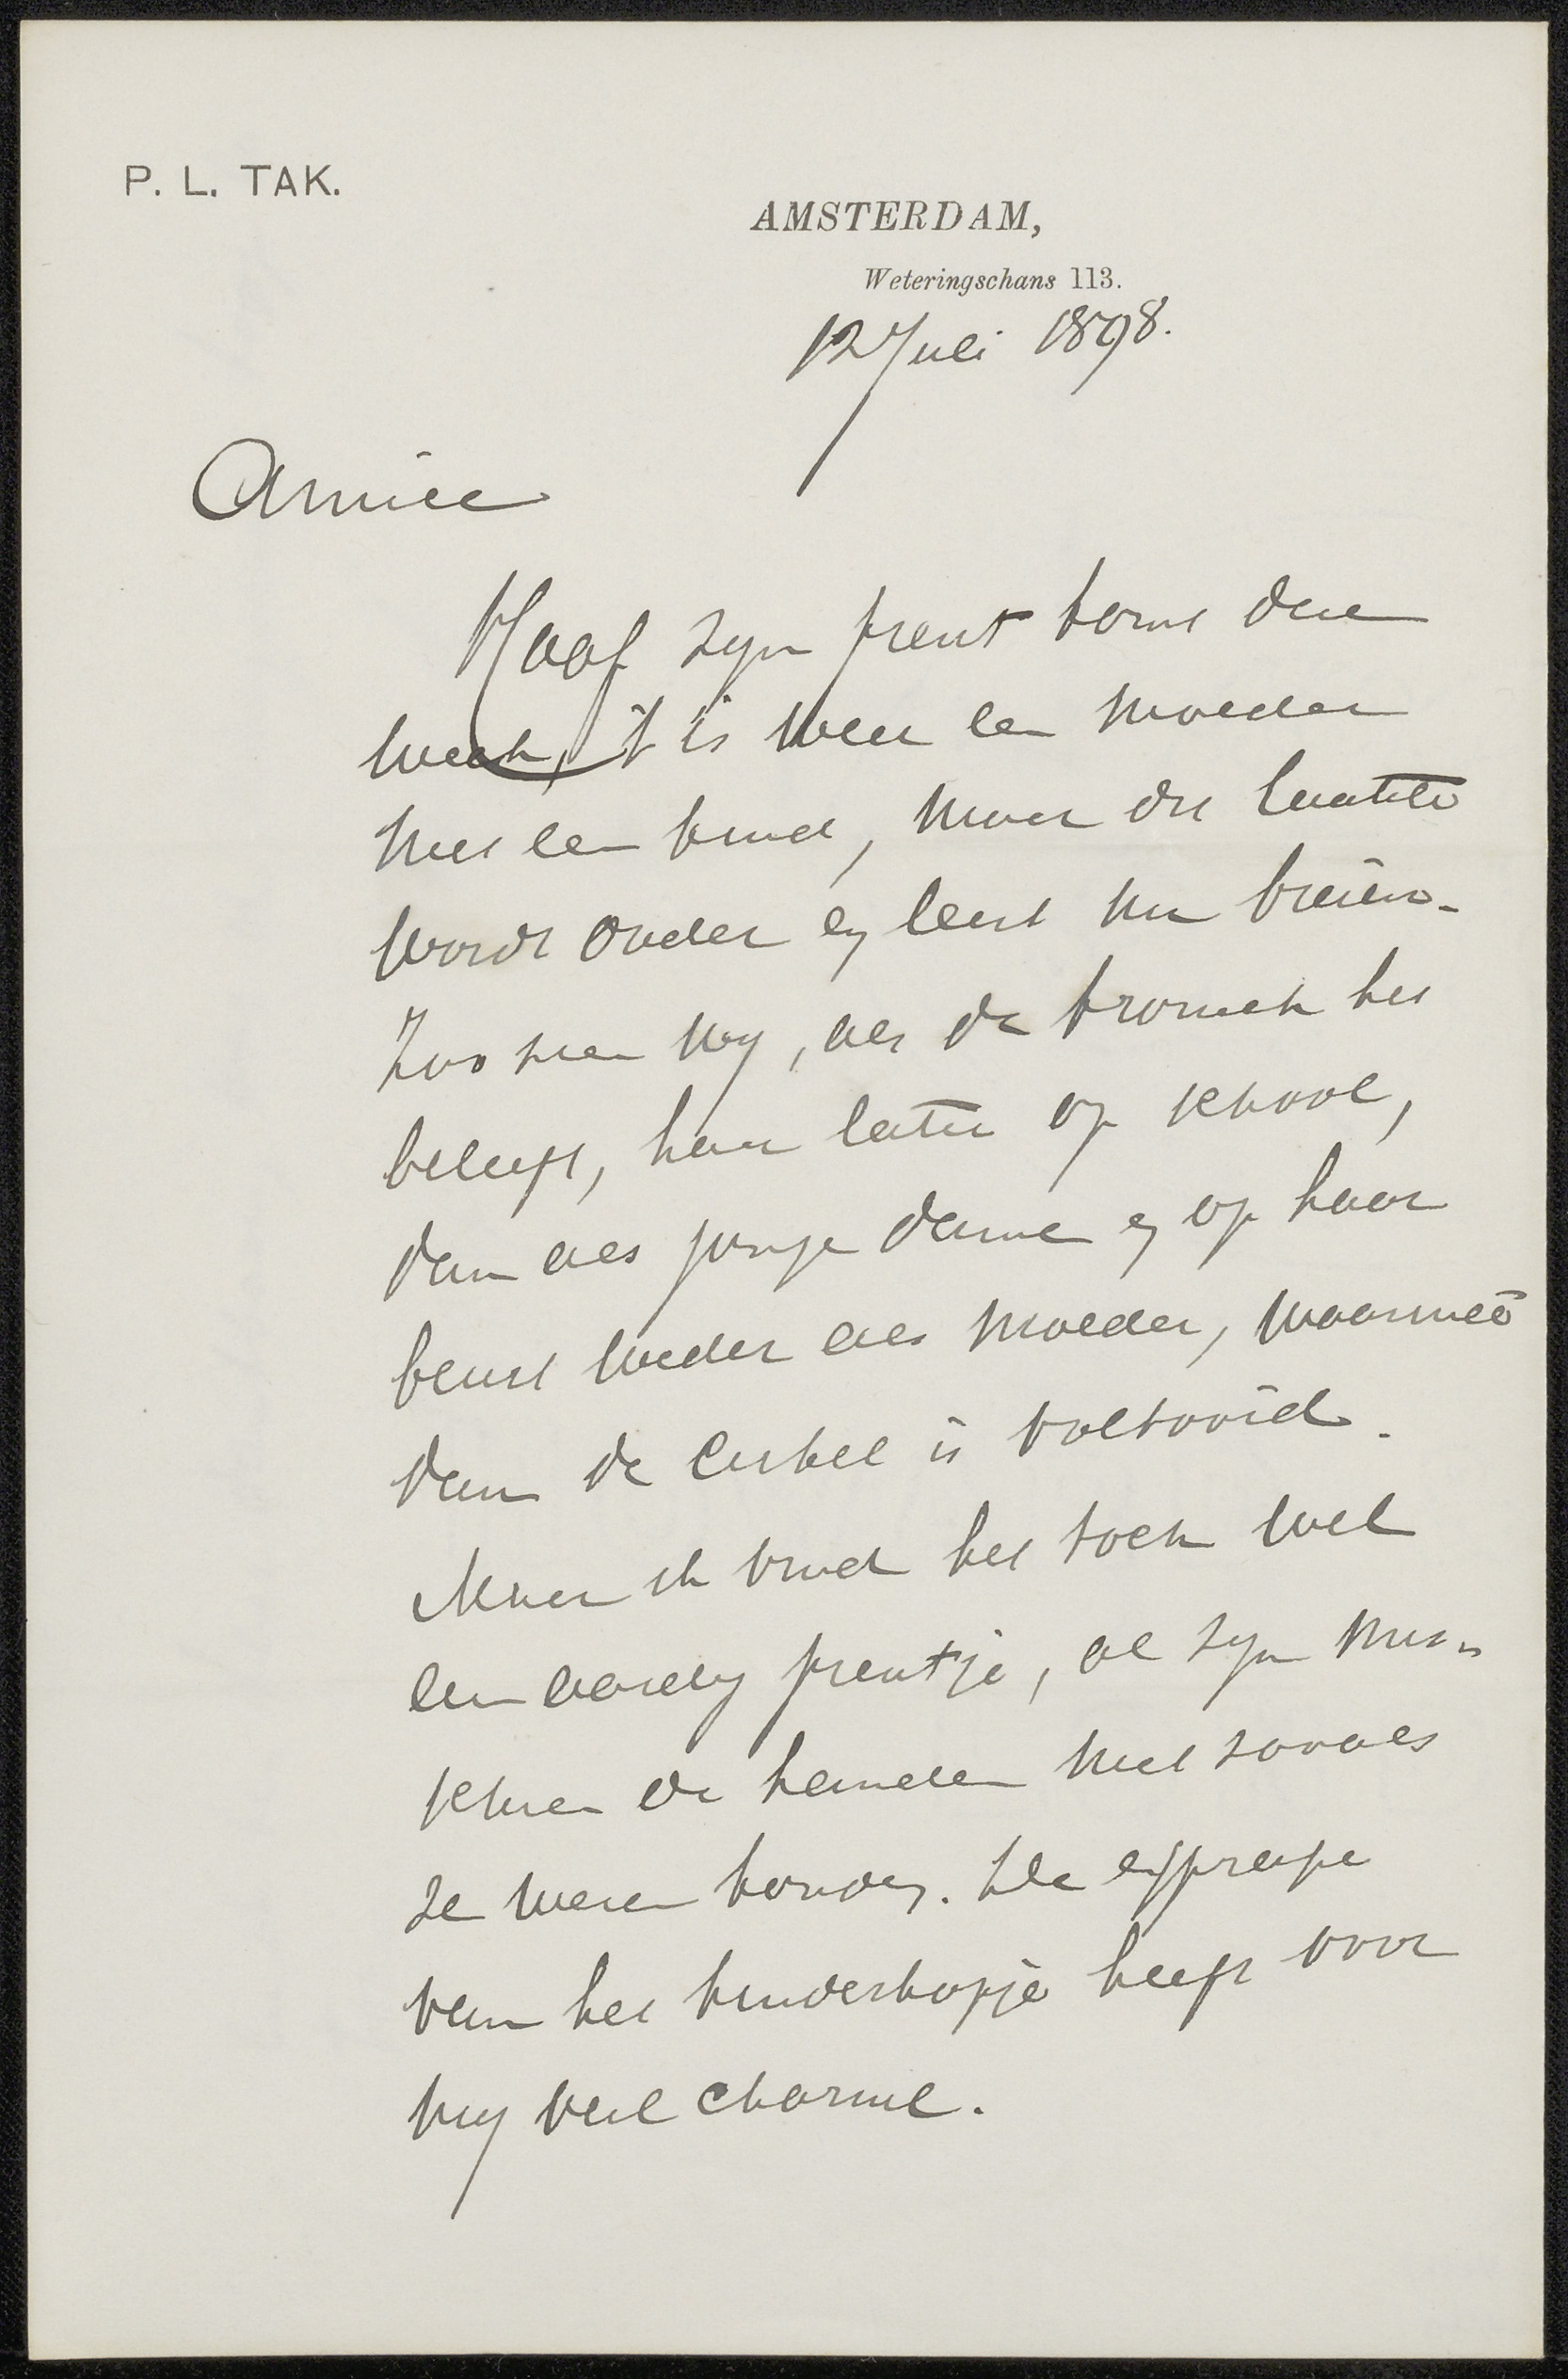 P. L. TAK.
AMSTERDAM,
Weteringschans 113.
12 Juli 1898.
Amice
Haaf zijn prent komt deze
week, 't is weer een moeder
met een kind, maar die laatste
wordt ouder en leert nu breien.
Zoo zien wij, als de kroniek het
beleeft, haar later op school,
dan als jonge dame en op haar
beurt weder als moeder, waarmeê
dan de cirkel is voltooid.
Maar ik vind het toch wel
een aardig prentje, al zijn mis-
schien de handen niet zooals
ze weren konden. De expressie
van het kinderkopje heeft voor
mij veel charme.